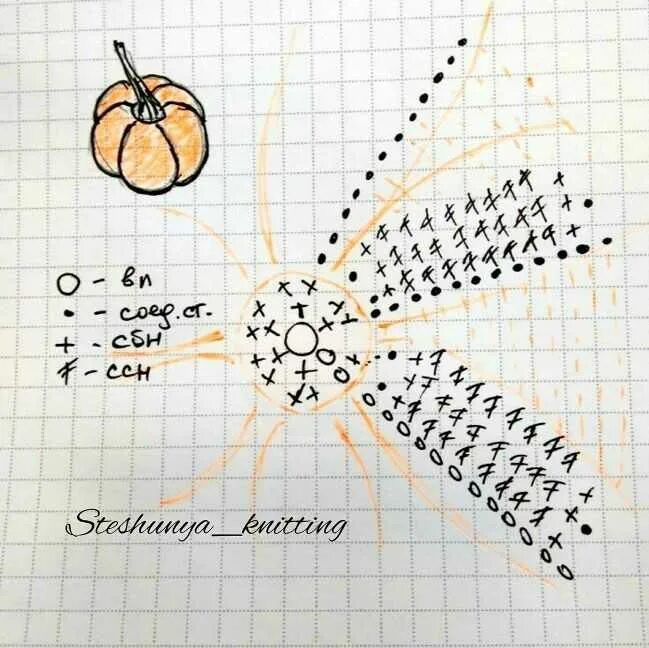 O - вп
• - соед.ст.
+ - сбн
Ŧ - ссн
Steshunya_knitting